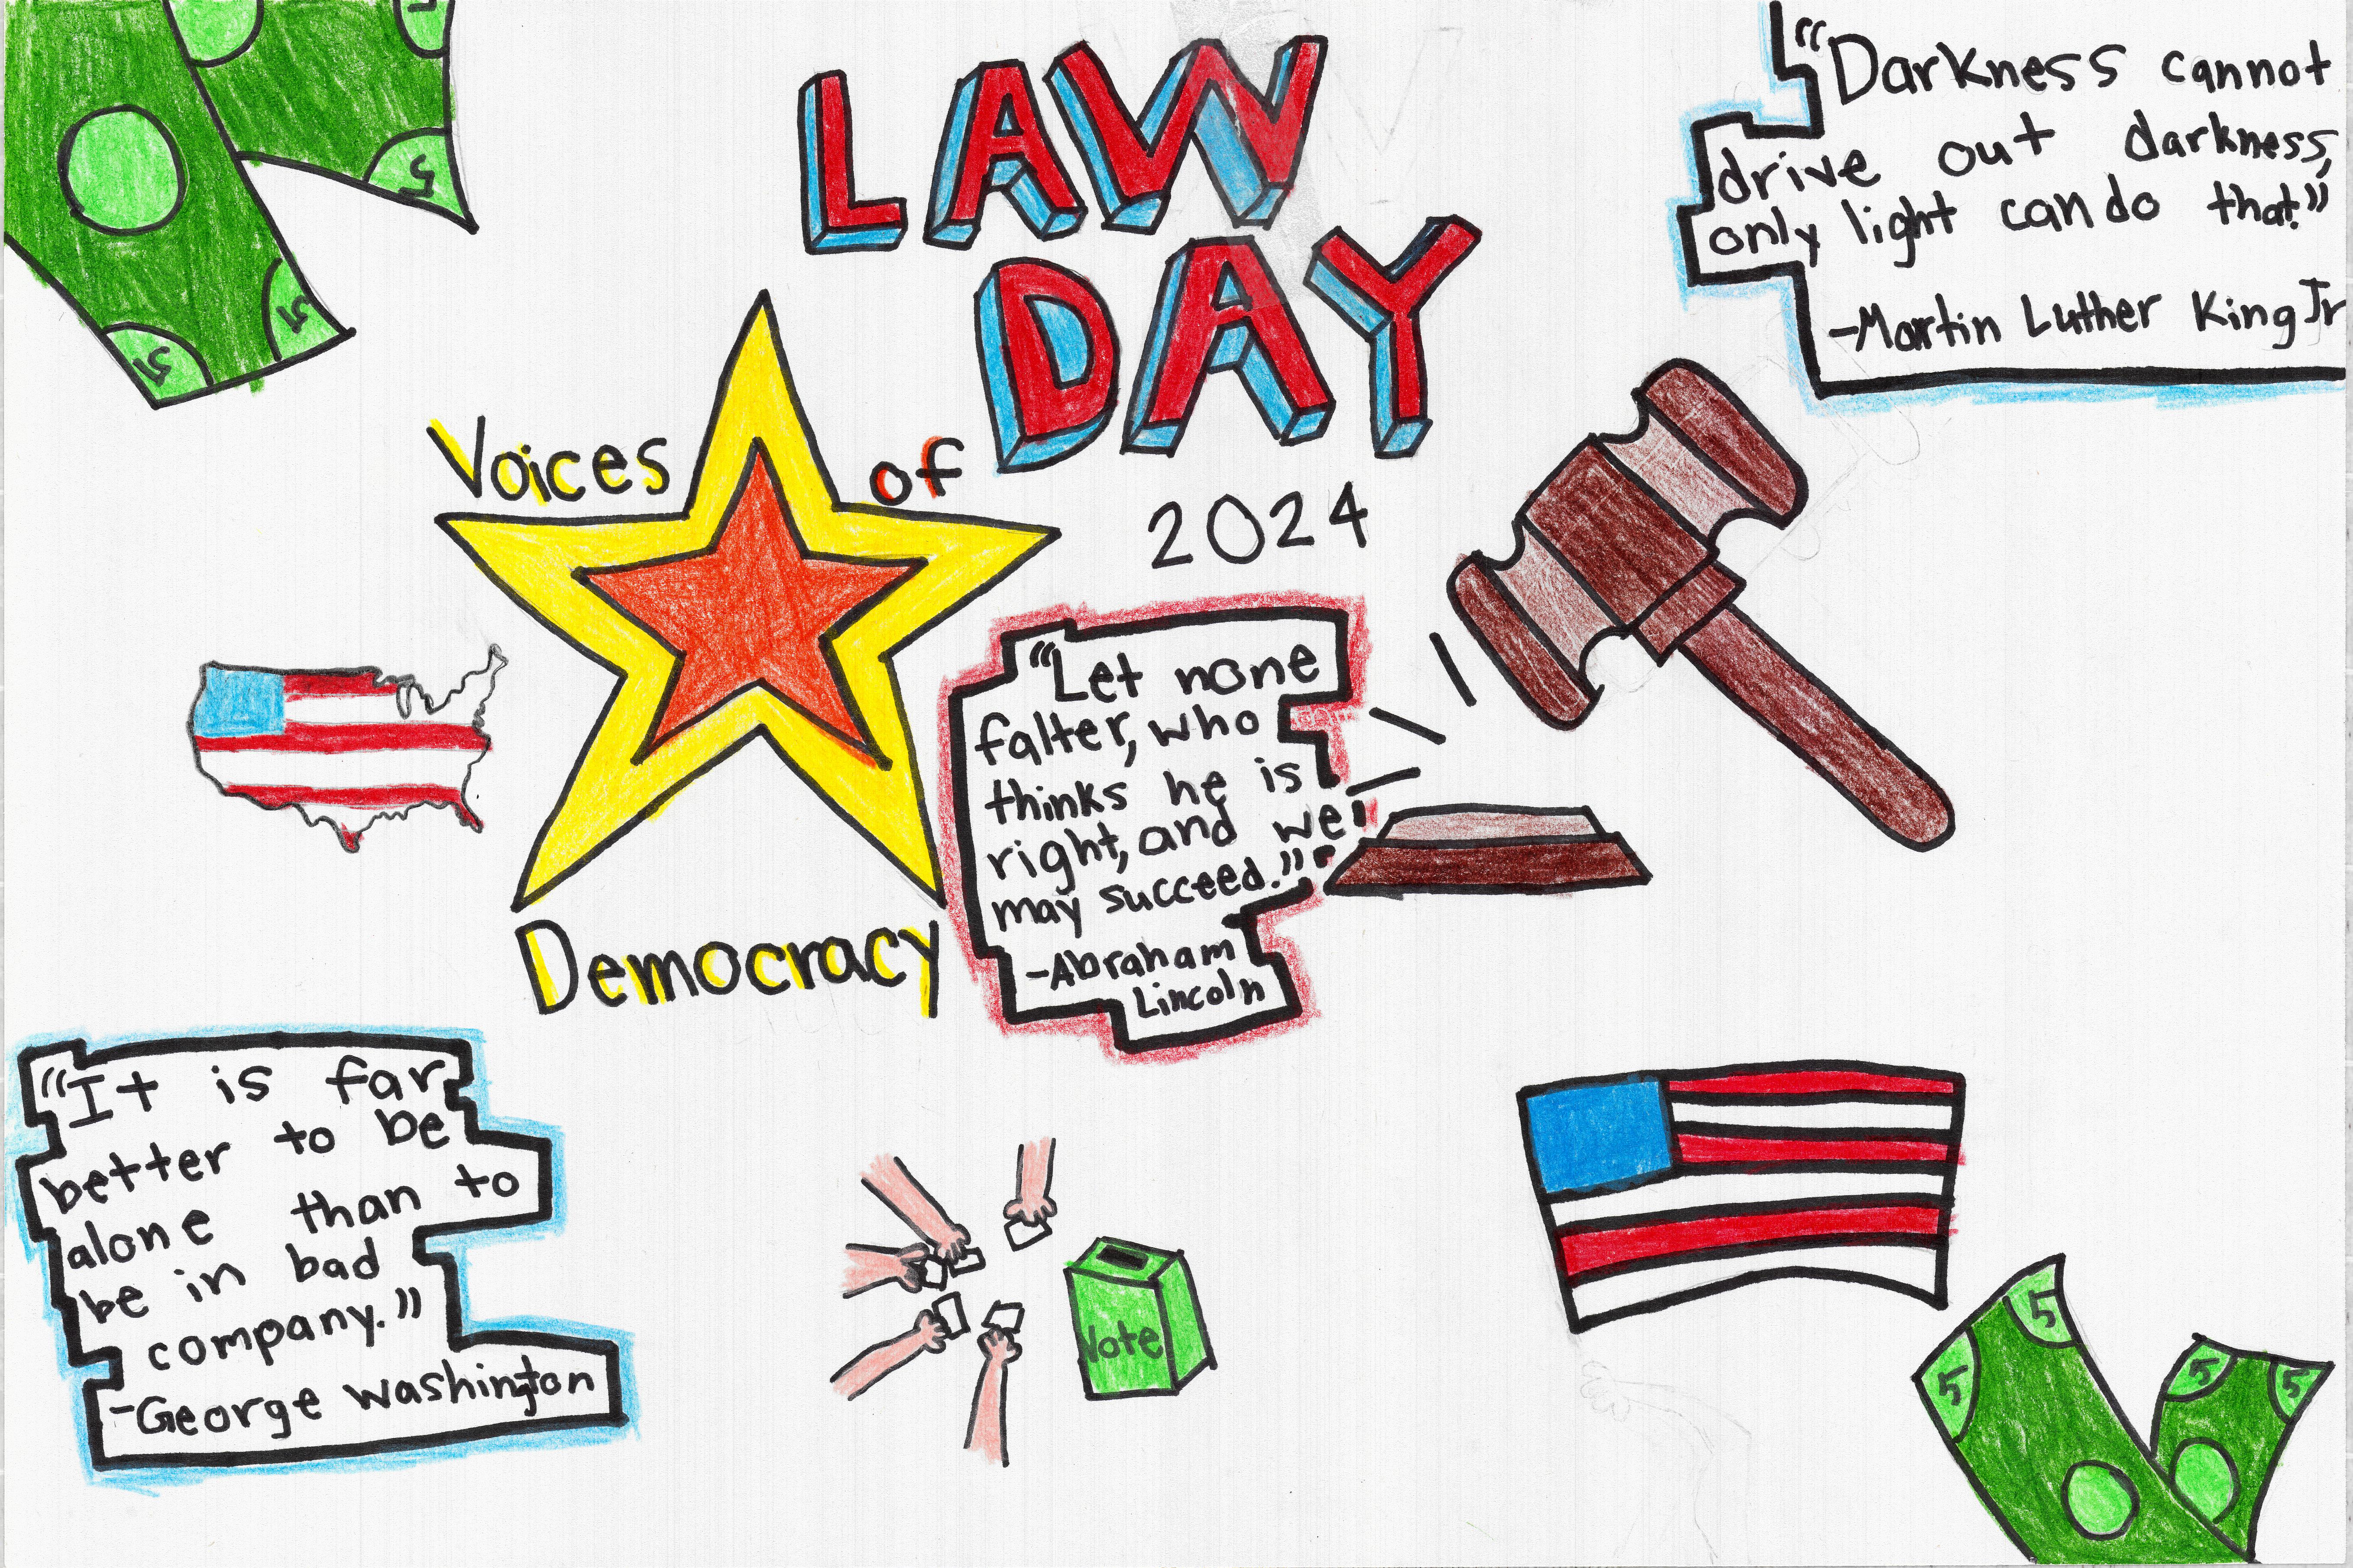 LAW
DAY
2024
Voices of
Democracy
"Darkness cannot
drive out darkness,
only light can do that."
-Martin Luther King Jr
"Let none
falter, who
thinks he is
right, and we
may succeed."
-Abraham
Lincoln
"It is far
better to be
alone than to
be in bad
company."
-George Washington
Vote
5
5
5
5
5
5
5